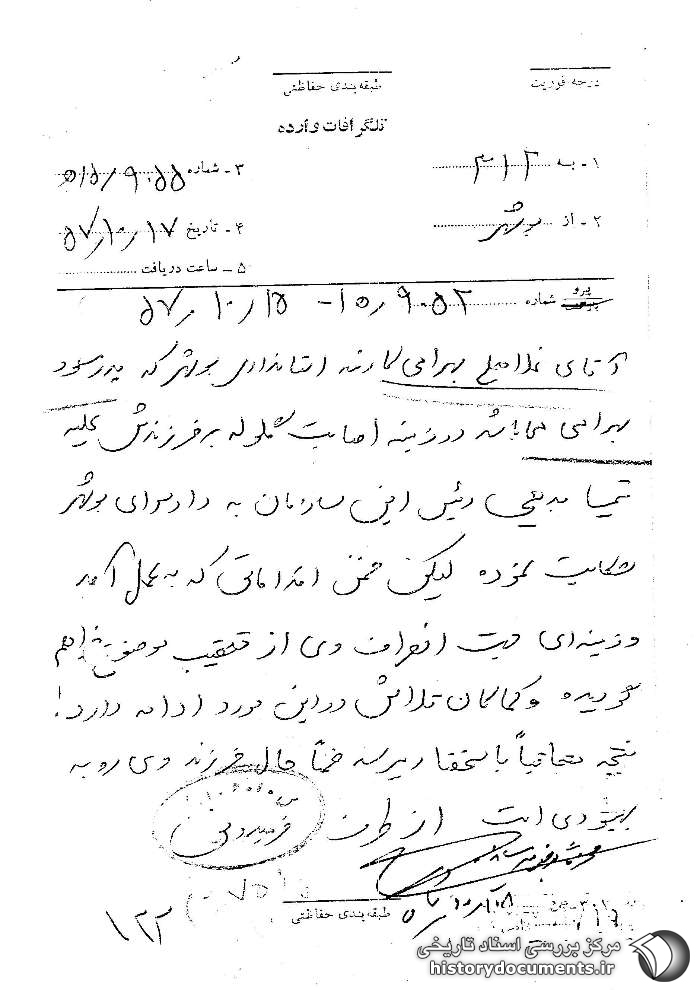 درجه فوریت
طبقه‌بندی حفاظتی
تلگرافات وارده
۱- به ۳۱۲
۳- شماره ۹۰۵۵/۱۵
۲- از بوشهر
۴- تاریخ ۵۷/۱۰/۱۷
۵- ساعت دریافت
پیرو شماره ۱۵٫۹۰۵۲ - ۵۷٫۱۰٫۱۵
آقای غلامعلی بهرامی کارمند استانداری بوشهر که پدر مسعود
بهرامی می‌باشد در زمینه اصابت گلوله بر فرزندش علیه
رئیس این سازمان به دادسرای بوشهر
شکایت نموده لیکن ضمن اقداماتی که به عمل آمد
زمینه‌ای جهت انصراف وی از تعقیب موضوع فراهم
گردیده و کماکان تلاش در این مورد ادامه دارد
نتیجه متعاقباً باستحضار میرسد ضمناً حال فرزند وی رو به
بهبودی است از طرف
طبقه‌بندی حفاظتی
۱۲۲
مرکز بررسی اسناد تاریخی
historydocuments.ir